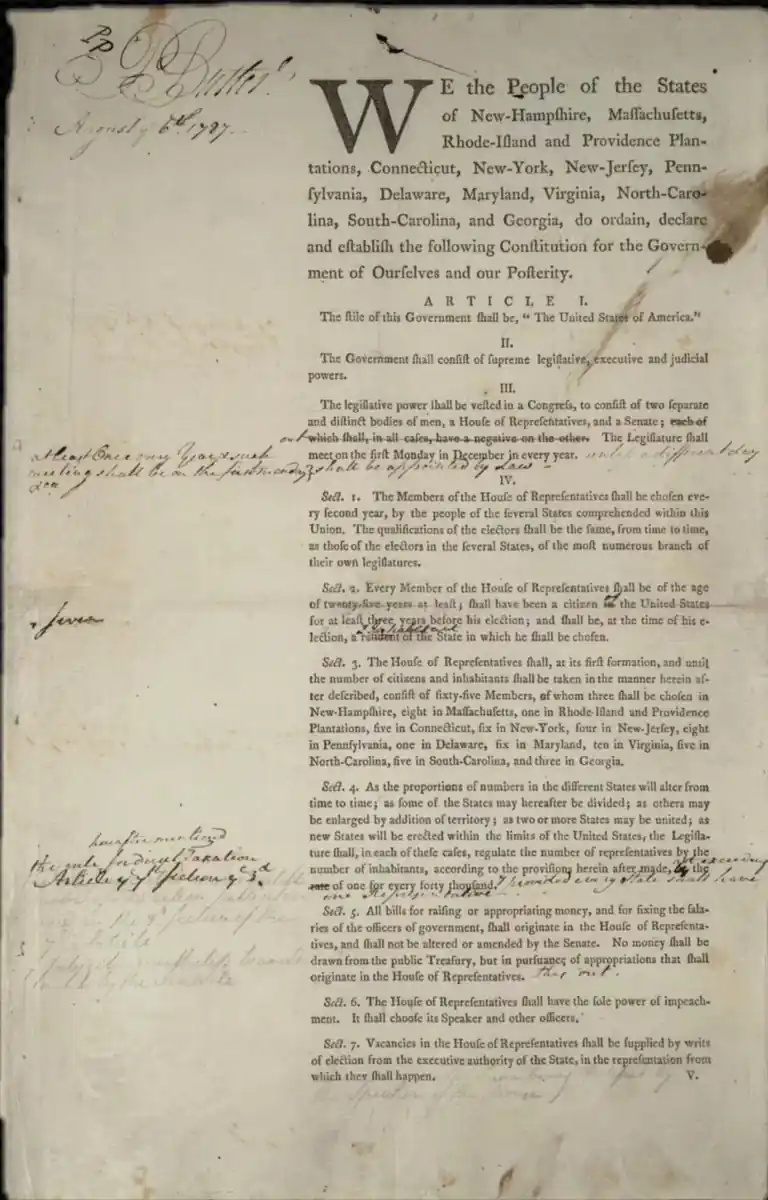 P. Butler
August 6th. 1787.
WE the People of the States
of New-Hampſhire, Maſſachuſetts,
Rhode-Iſland and Providence Plan-
tations, Connecticut, New-York, New-Jerſey, Penn-
ſylvania, Delaware, Maryland, Virginia, North-Caro-
lina, South-Carolina, and Georgia, do ordain, declare
and eſtabliſh the following Conſtitution for the Govern-
ment of Ourſelves and our Poſterity.
ARTICLE I.
The ſtile of this Government ſhall be, “ The United States of America.”
II.
The Government ſhall conſiſt of ſupreme legiſlative, executive and judicial
powers.
III.
The legiſlative power ſhall be veſted in a Congreſs, to conſiſt of two ſeparate
and diſtinct bodies of men, a Houſe of Repreſentatives, and a Senate; each of
out which ſhall, in all caſes, have a negative on the other. The Legiſlature ſhall
at least Once every Year & such meet on the firſt Monday in December in every year. until a different day
meeting shall be on the first monday shall be appointed by Law
IV.
Sect. 1. The Members of the Houſe of Repreſentatives ſhall be choſen eve-
ry ſecond year, by the people of the ſeveral States comprehended within this
Union. The qualifications of the electors ſhall be the ſame, from time to time,
as thoſe of the electors in the ſeveral States, of the moſt numerous branch of
their own legiſlatures.
Sect. 2. Every Member of the Houſe of Repreſentatives ſhall be of the age
of twenty-five years at leaſt; ſhall have been a citizen the United States
seven for at leaſt three years before his election; and ſhall be, at the time of his e-
Inhabitant
lection, a reſident of the State in which he ſhall be choſen.
Sect. 3. The Houſe of Repreſentatives ſhall, at its firſt formation, and until
the number of citizens and inhabitants ſhall be taken in the manner herein af-
ter deſcribed, conſiſt of ſixty-five Members, of whom three ſhall be choſen in
New-Hampſhire, eight in Maſſachuſetts, one in Rhode-Iſland and Providence
Plantations, five in Connecticut, ſix in New-York, four in New-Jerſey, eight
in Pennſylvania, one in Delaware, ſix in Maryland, ten in Virginia, five in
North-Carolina, five in South-Carolina, and three in Georgia.
Sect. 4. As the proportions of numbers in the different States will alter from
time to time; as ſome of the States may hereafter be divided; as others may
be enlarged by addition of territory; as two or more States may be united; as
new States will be erected within the limits of the United States, the Legiſla-
hereafter mentioned
ture ſhall, in each of theſe caſes, regulate the number of repreſentatives by the
the rule for direct Taxation number of inhabitants, according to the proviſions herein after made, not exceeding
Article ye 7th section ye 3d rate of one for every forty thouſand. provided every State shall have
one Representative
Sect. 5. All bills for raiſing or appropriating money, and for fixing the ſala-
ries of the officers of government, ſhall originate in the Houſe of Repreſenta-
tives, and ſhall not be altered or amended by the Senate. No money ſhall be
drawn from the public Treaſury, but in purſuance of appropriations that ſhall
originate in the Houſe of Repreſentatives. This out.
Sect. 6. The Houſe of Repreſentatives ſhall have the ſole power of impeach-
ment. It ſhall chooſe its Speaker and other officers.
Sect. 7. Vacancies in the Houſe of Repreſentatives ſhall be ſupplied by writs
of election from the executive authority of the State, in the repreſentation from
which they ſhall happen.
V.